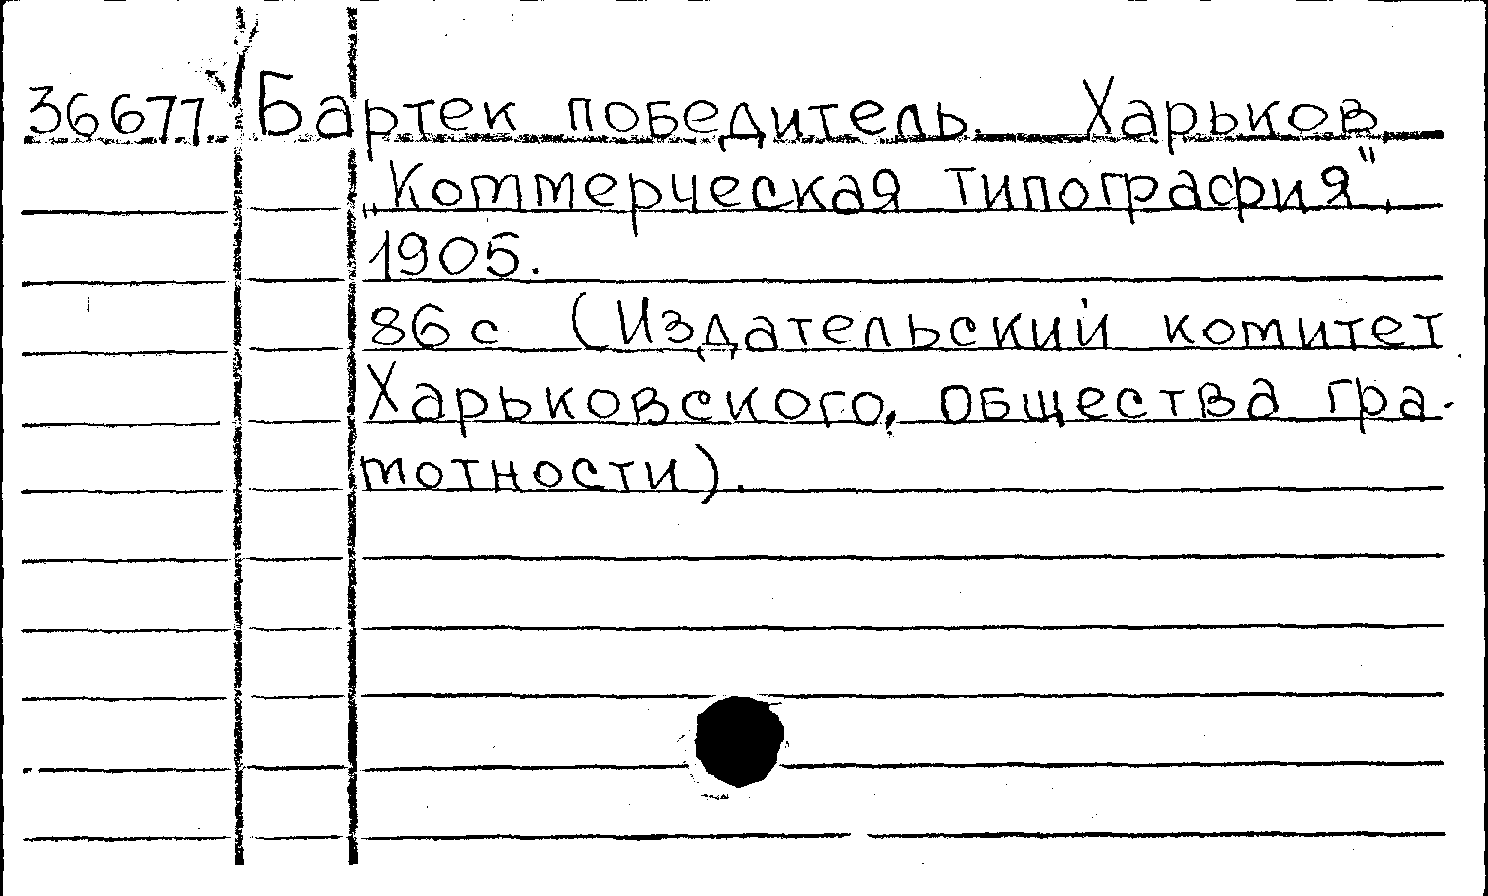 36677 Бартек победитель. Харьков
„Коммерческая типография",
1905.
86 с (Издательский комитет
Харьковского, общества гра-
мотности).